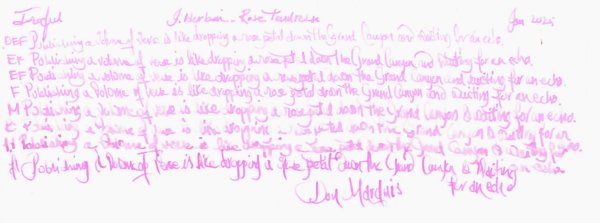 J. Herbin - Rose Tendresse Jan 2025
DEF Publishing a volume of verse is like dropping a rose petal down the Grand Canyon and waiting for an echo.
EF Publishing a volume of verse is like dropping a rose petal down the Grand Canyon and waiting for an echo.
EF Publishing a volume of verse is like dropping a rose petal down the Grand Canyon and waiting for an echo.
F Publishing a Volume of verse is like dropping a rose petal down the Grand Canyon and Waiting for an echo.
M Publishing a Volume of verse is like dropping a rose petal down the Grand Canyon & Waiting for an echo.
Publishing a Volume of verse is like dropping a rose petal down the Grand Canyon & Waiting for an
Publishing a Volume of verse is like dropping a rose petal down the Grand Canyon & Waiting for
an echo
Publishing a Volume of Verse is like dropping a rose petal down the Grand Canyon & Waiting
for an echo
Don Marquis